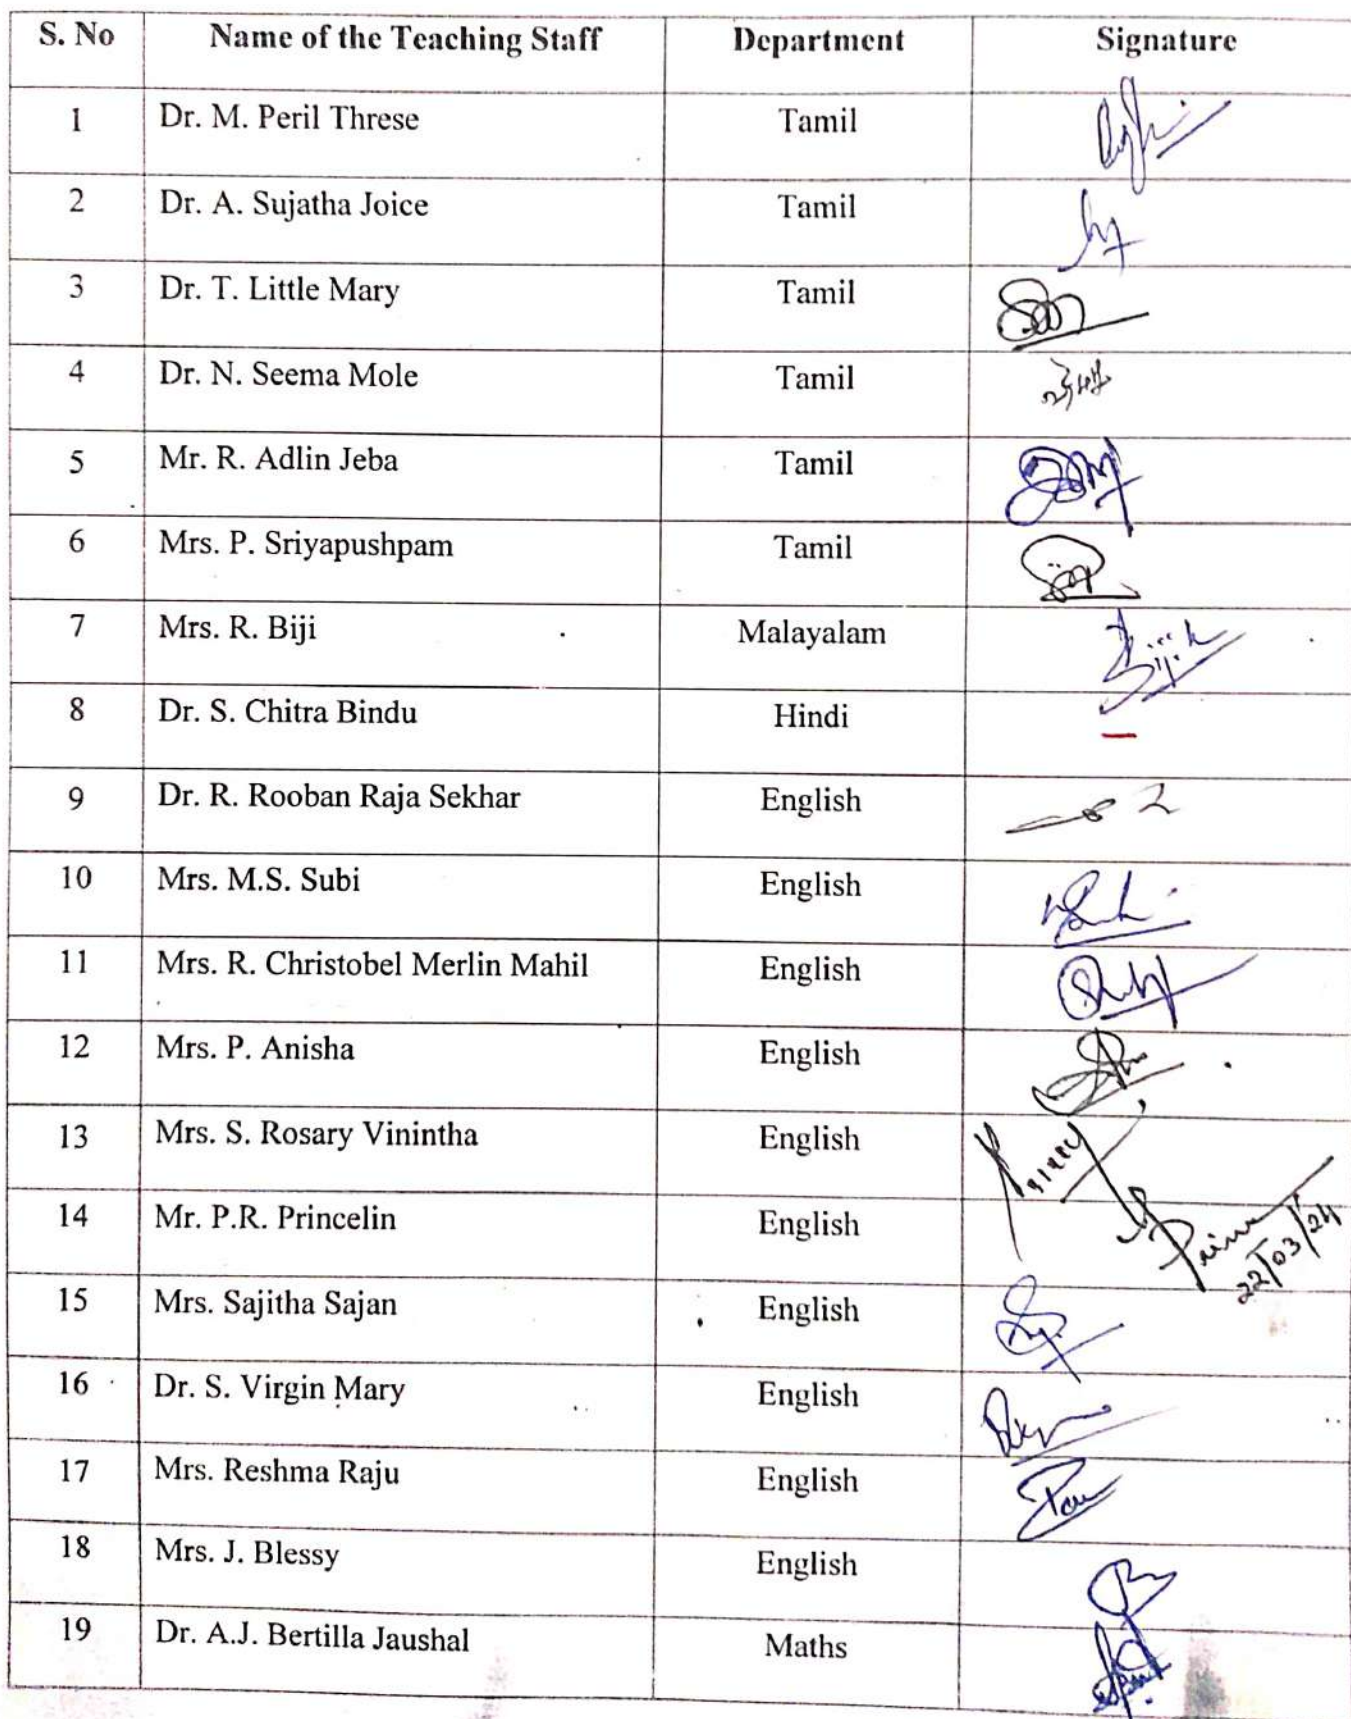 S. No Name of the Teaching Staff Department Signature
1 Dr. M. Peril Threse Tamil
2 Dr. A. Sujatha Joice Tamil
3 Dr. T. Little Mary Tamil
4 Dr. N. Seema Mole Tamil
5 Mr. R. Adlin Jeba Tamil
6 Mrs. P. Sriyapushpam Tamil
7 Mrs. R. Biji Malayalam
8 Dr. S. Chitra Bindu Hindi
9 Dr. R. Rooban Raja Sekhar English
10 Mrs. M.S. Subi English
11 Mrs. R. Christobel Merlin Mahil English
12 Mrs. P. Anisha English
13 Mrs. S. Rosary Vinintha English
14 Mr. P.R. Princelin English 22/03/24
15 Mrs. Sajitha Sajan English
16 Dr. S. Virgin Mary English
17 Mrs. Reshma Raju English
18 Mrs. J. Blessy English
19 Dr. A.J. Bertilla Jaushal Maths